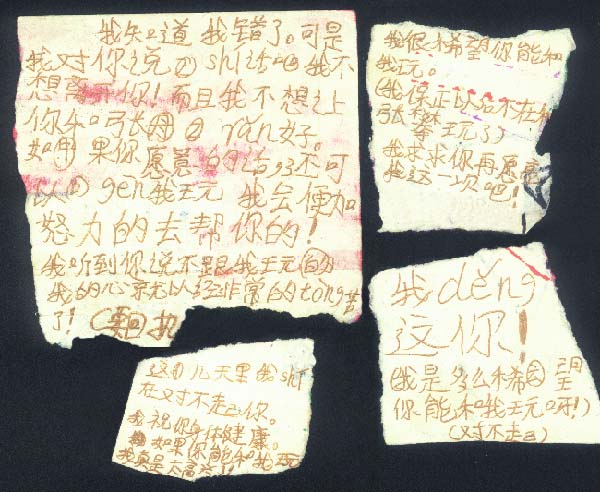 我知道我错了。可是
我对你说的shí话吧我不
想离开你！而且我不想让
你和张 rèn好。
如果你愿意的话可不可
以gēn我玩 我会更加
努力的去帮你的！
我听到你说不跟我玩的
我的心就以经非常的tòng苦
了！（要回执
我很希望你能和
我玩。
（我保正以后不在和
张 玩了）
我求求你再原谅
我这一次吧！
我děng
这你！
（我是多么希望
你能和我玩呀！）
（对不起）
这几天里我shí
在对不起你。
我祝你身体健康。
如果你能和我玩
我真是太高兴了！